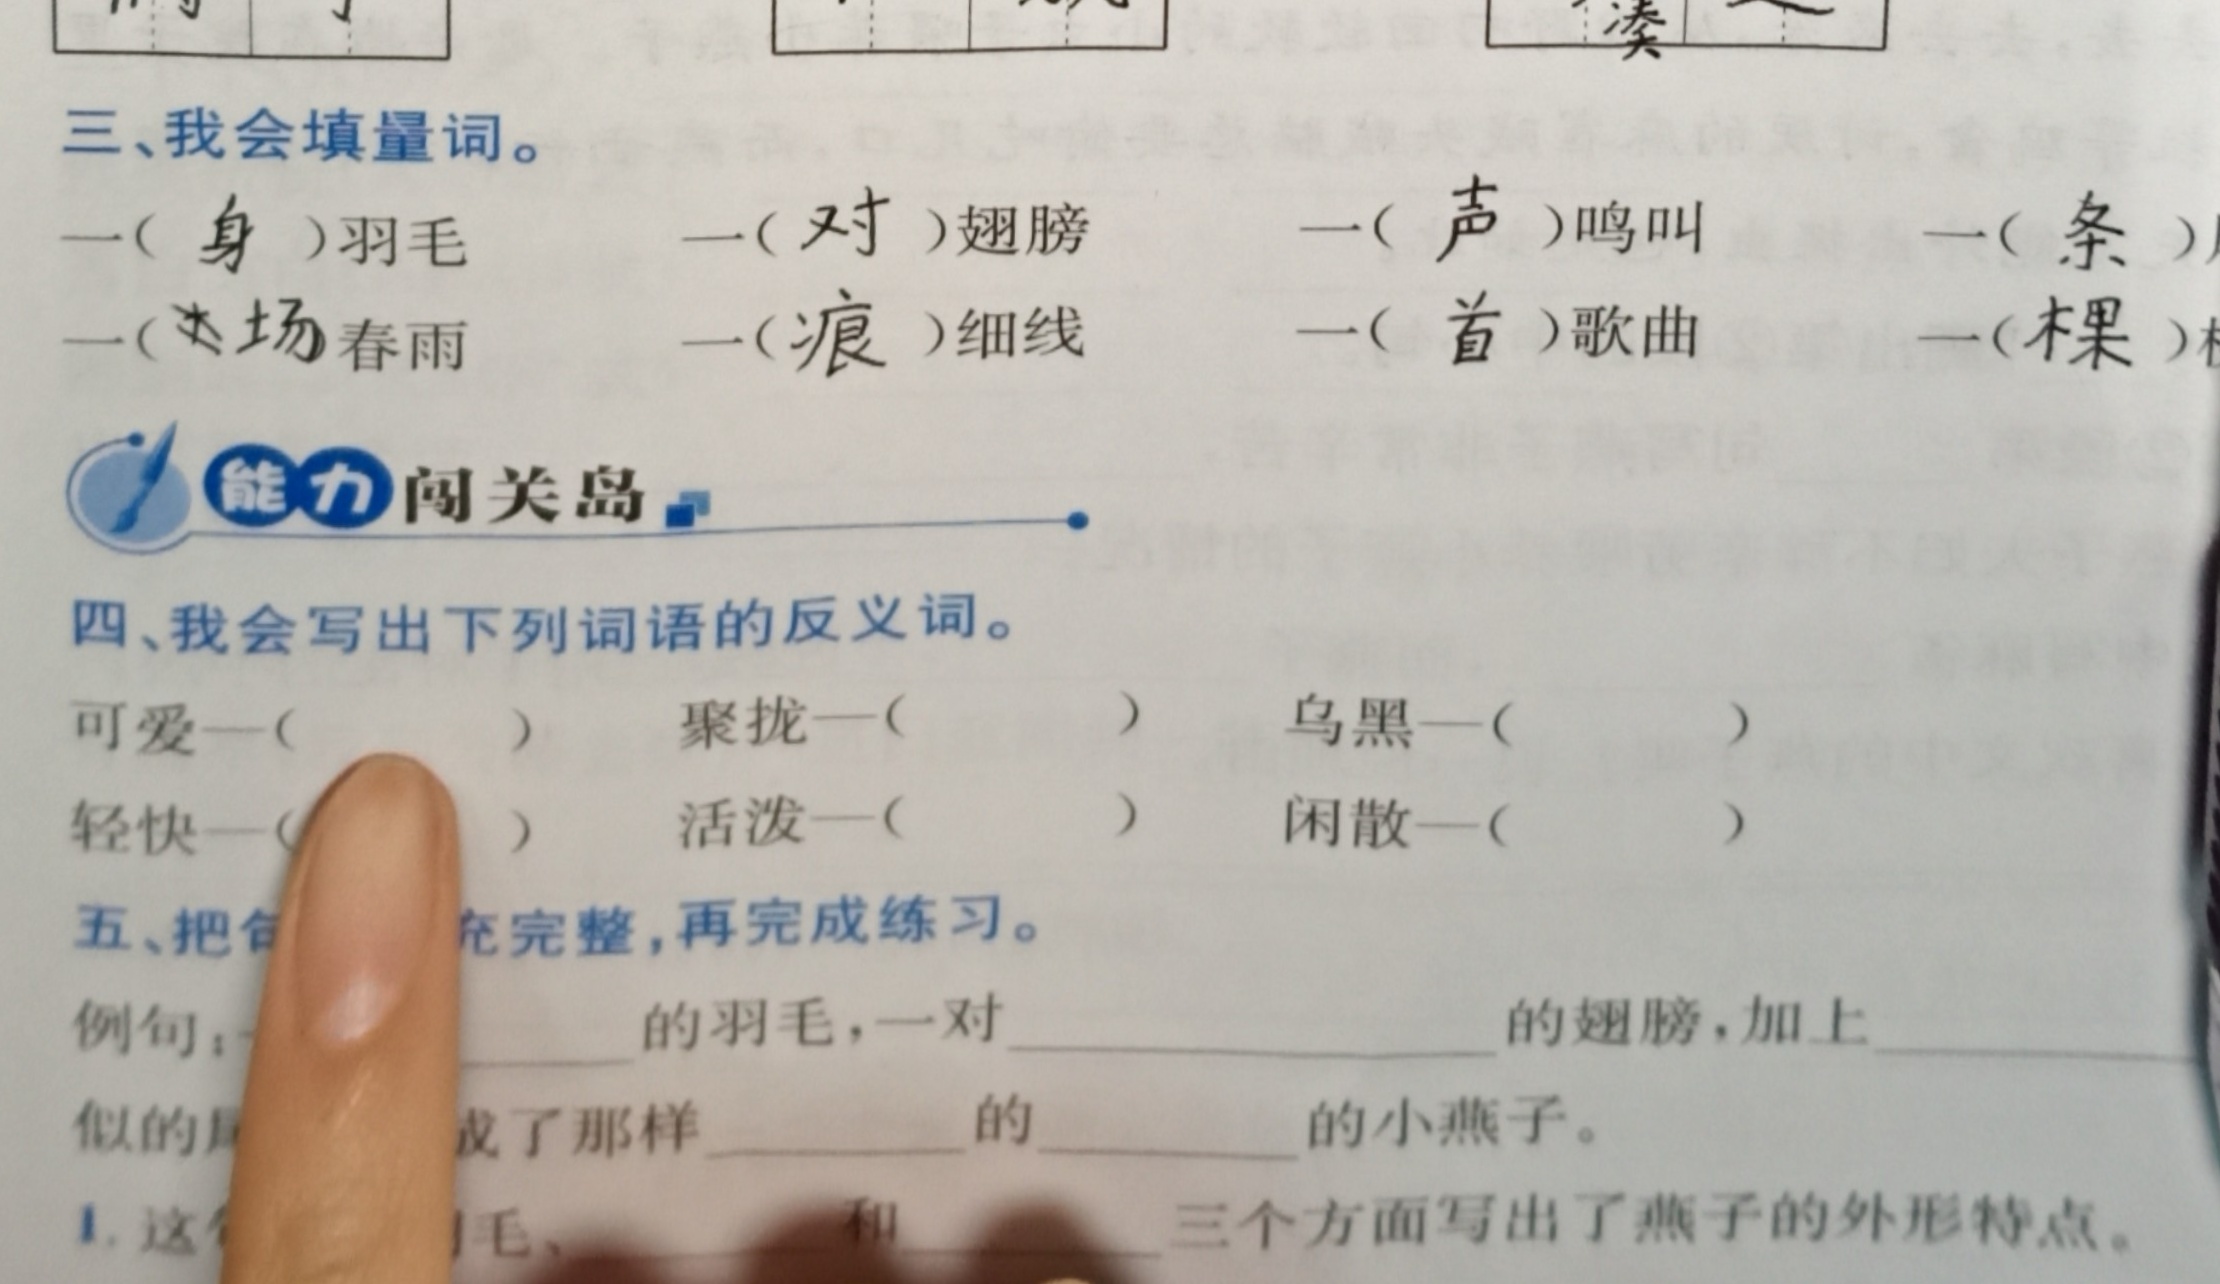 凑
三、我会填量词。
一(身)羽毛 一(对)翅膀 一(声)鸣叫 一(条)
一(场)春雨 一(痕)细线 一(首)歌曲 一(棵)
能力闯关岛
四、我会写出下列词语的反义词。
可爱—( ) 聚拢—( ) 乌黑—( )
轻快—( ) 活泼—( ) 闲散—( )
五、把 充完整,再完成练习。
例句: ______的羽毛,一对______的翅膀,加上______
似的 成了那样______的______的小燕子。
1. 这 毛、______和______三个方面写出了燕子的外形特点。